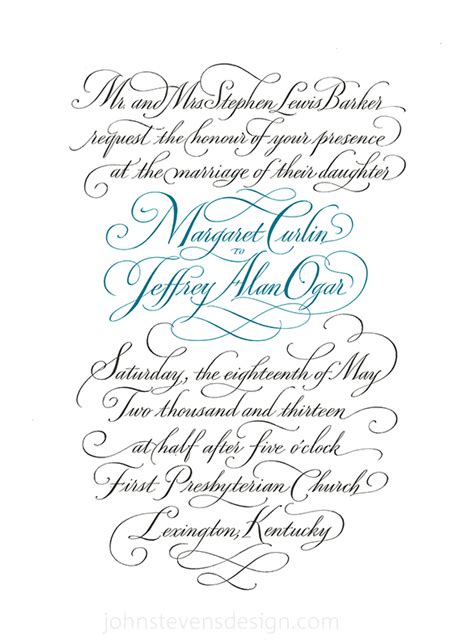 Mr. and Mrs Stephen Lewis Barker
request the honour of your presence
at the marriage of their daughter
Margaret Curlin
TO
Jeffrey Alan Ogar
Saturday, the eighteenth of May
Two thousand and thirteen
at half after five o'clock
First Presbyterian Church
Lexington, Kentucky
johnstevensdesign.com